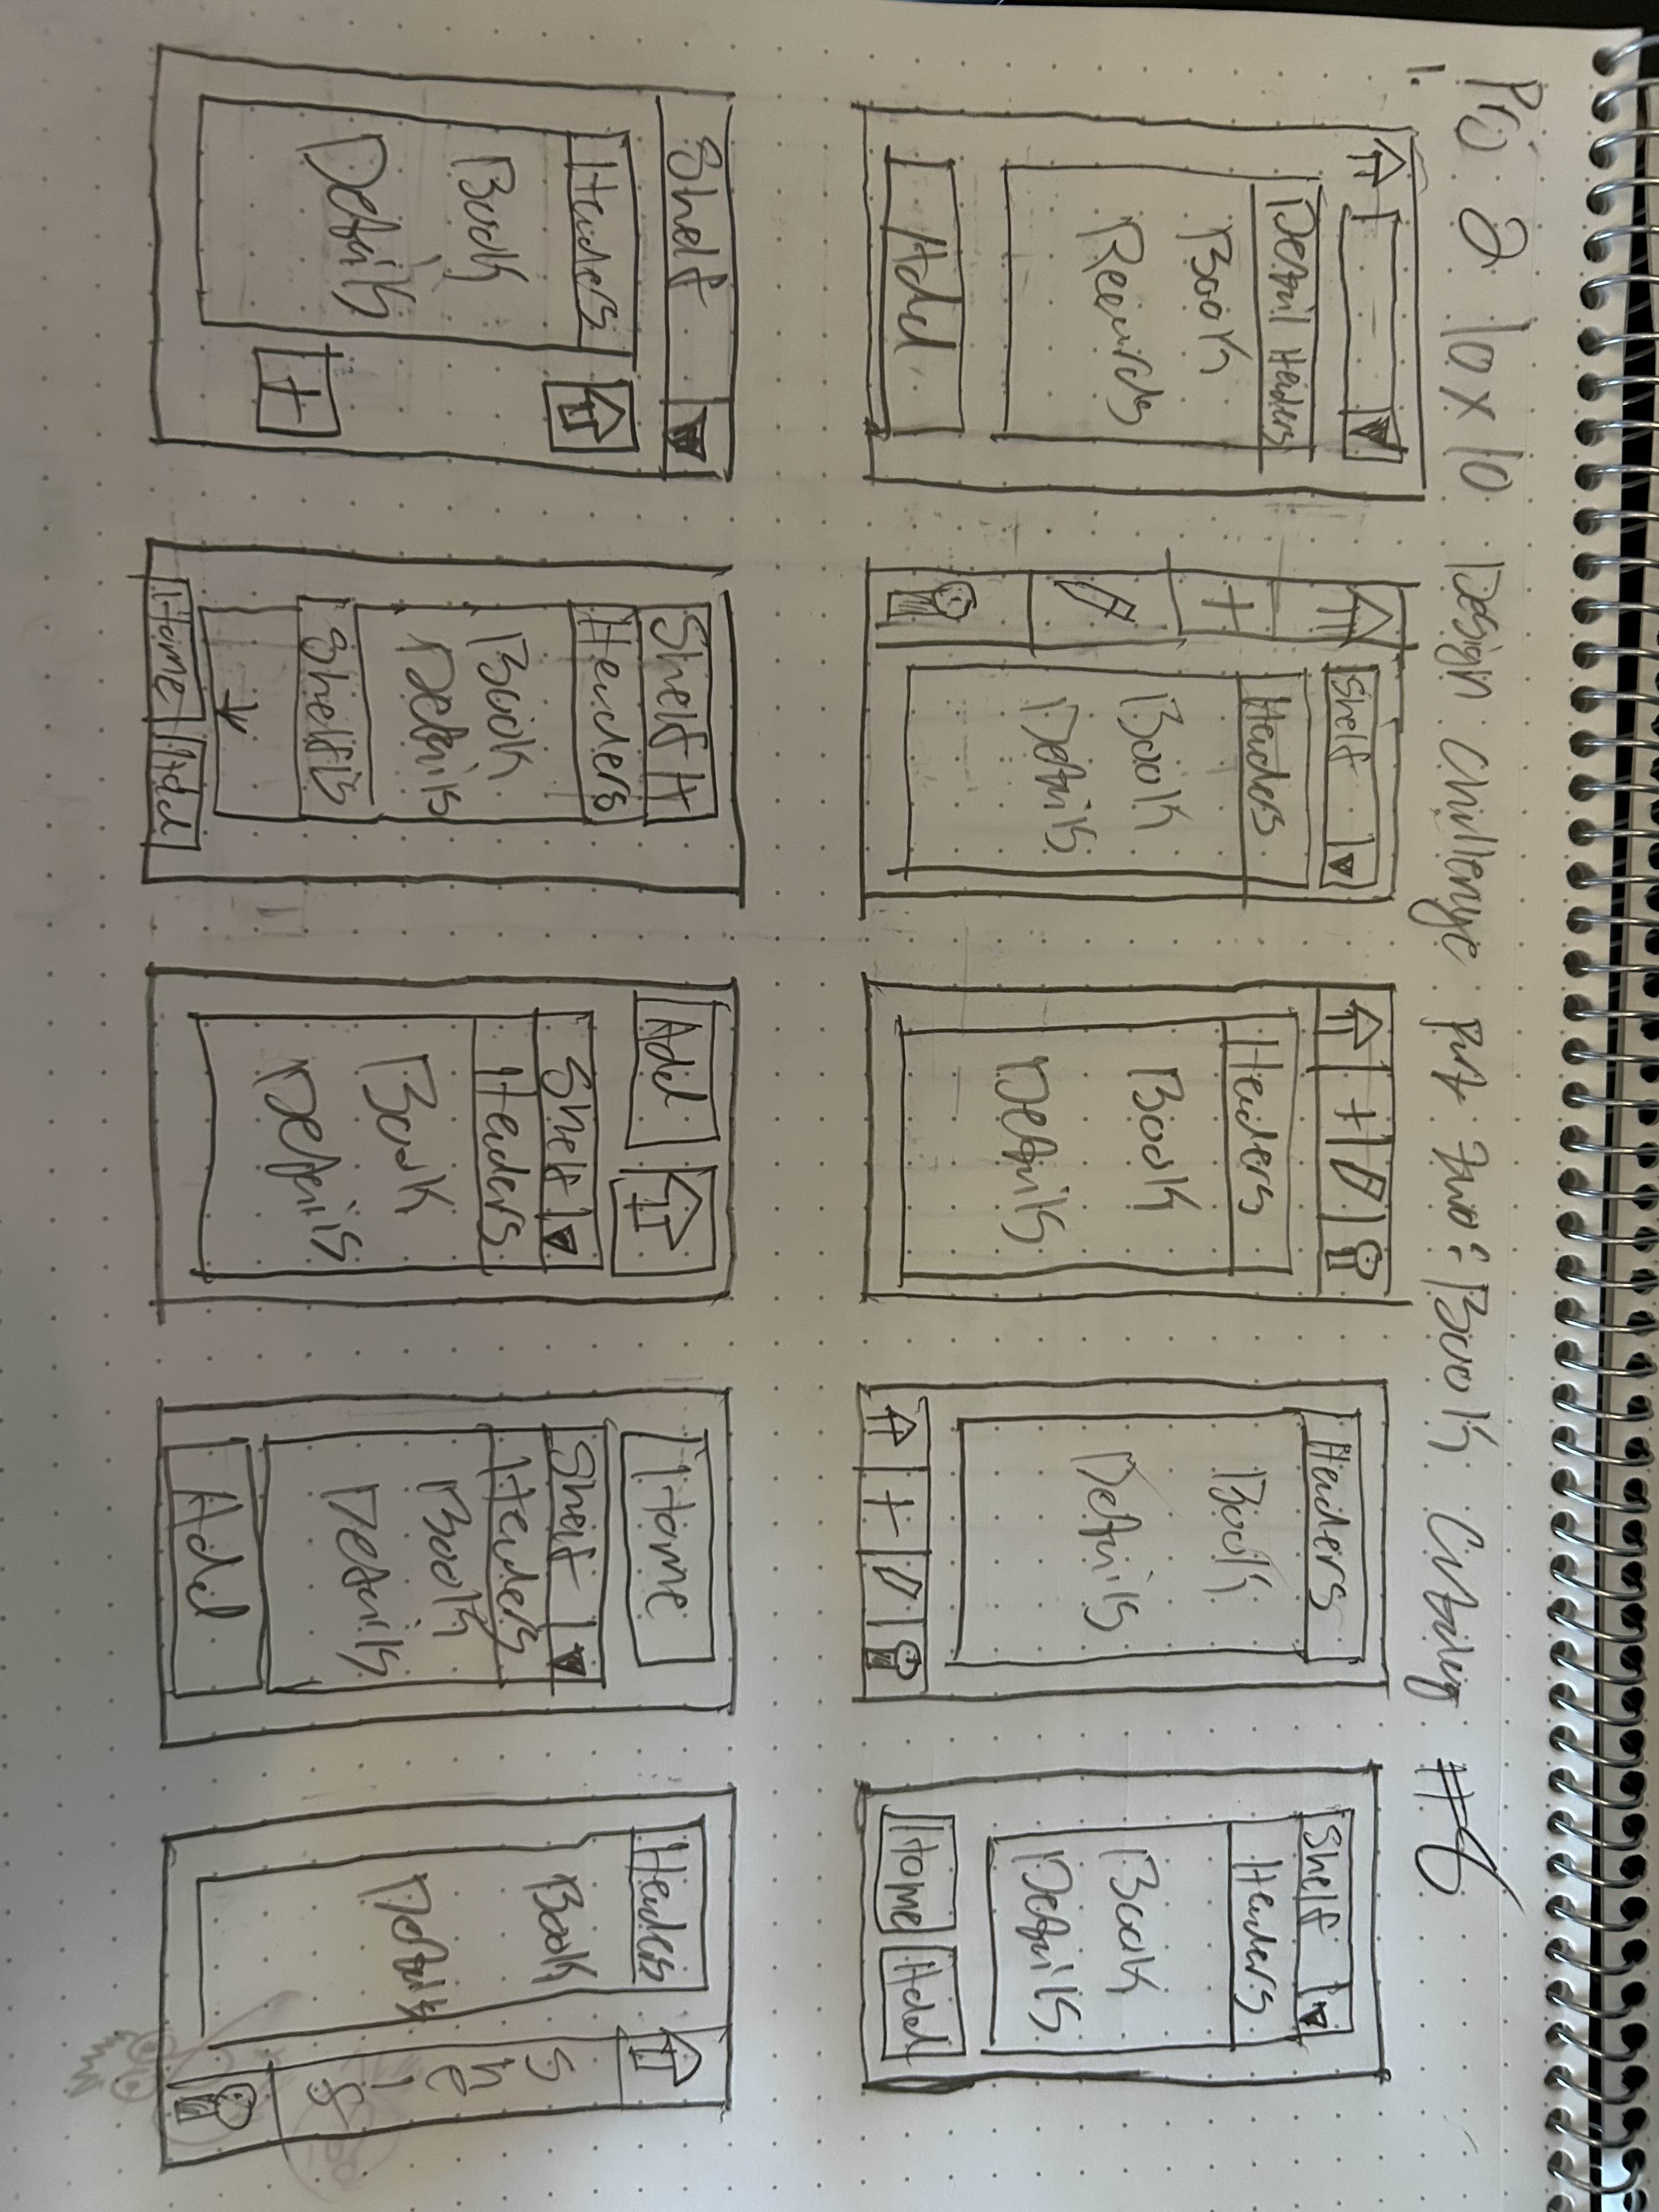 10 x 10 Design Challenge Part Two: Book Catalog #6
1.
Detail Headers
Book
Records
Add
Shelf
Headers
Book
Details
Headers
Book
Details
Headers
Book
Details
Shelf
Headers
Book
Details
Home Add
Shelf
Headers
Book
Details
Shelf A
Headers
Book
Details
Shelf B
Home Add
Add
Shelf
Headers
Book
Details
Home
Shelf
Headers
Book
Details
Add
Headers
Book
Details
S
h
e
l
f